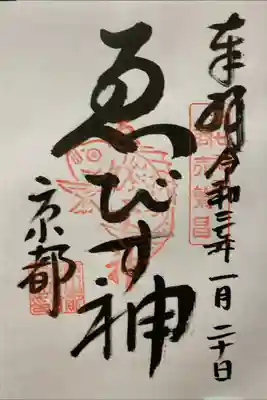 奉拝令和三年一月二十日
ゑびす神
京都